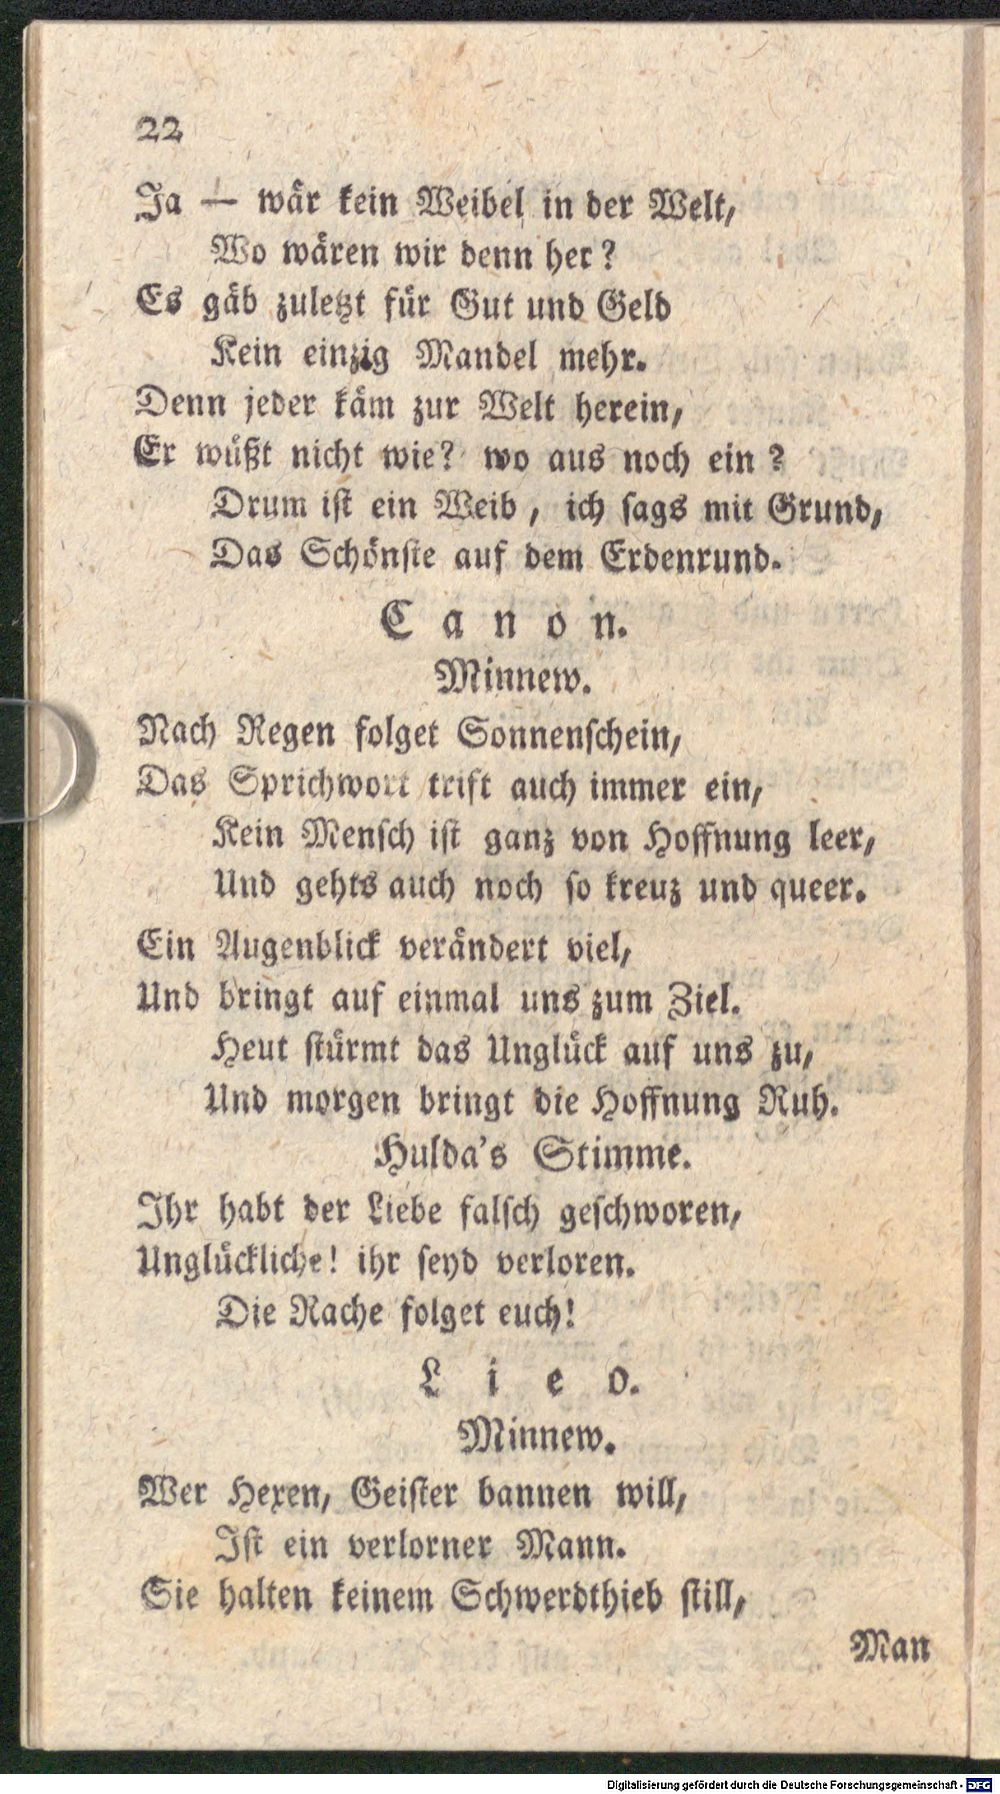 22
Ja — wär kein Weibel in der Welt,
Wo wären wir denn her?
Es gäb zuletzt für Gut und Geld
Kein einzig Mandel mehr.
Denn jeder käm zur Welt herein,
Er wüßt nicht wie? wo aus noch ein?
Drum ist ein Weib, ich sags mit Grund,
Das Schönste auf dem Erdenrund.
Canon.
Minnew.
Nach Regen folget Sonnenschein,
Das Sprichwort trift auch immer ein,
Kein Mensch ist ganz von Hoffnung leer,
Und gehts auch noch so kreuz und queer.
Ein Augenblick verändert viel,
Und bringt auf einmal uns zum Ziel.
Heut stürmt das Unglück auf uns zu,
Und morgen bringt die Hoffnung Ruh.
Hulda's Stimme.
Ihr habt der Liebe falsch geschworen,
Unglückliche! ihr seyd verloren.
Die Rache folget euch!
Lied.
Minnew.
Wer Hexen, Geister bannen will,
Ist ein verlorner Mann.
Sie halten keinem Schwerdthieb still,
Man
Digitalisierung gefördert durch die Deutsche Forschungsgemeinschaft - DFG